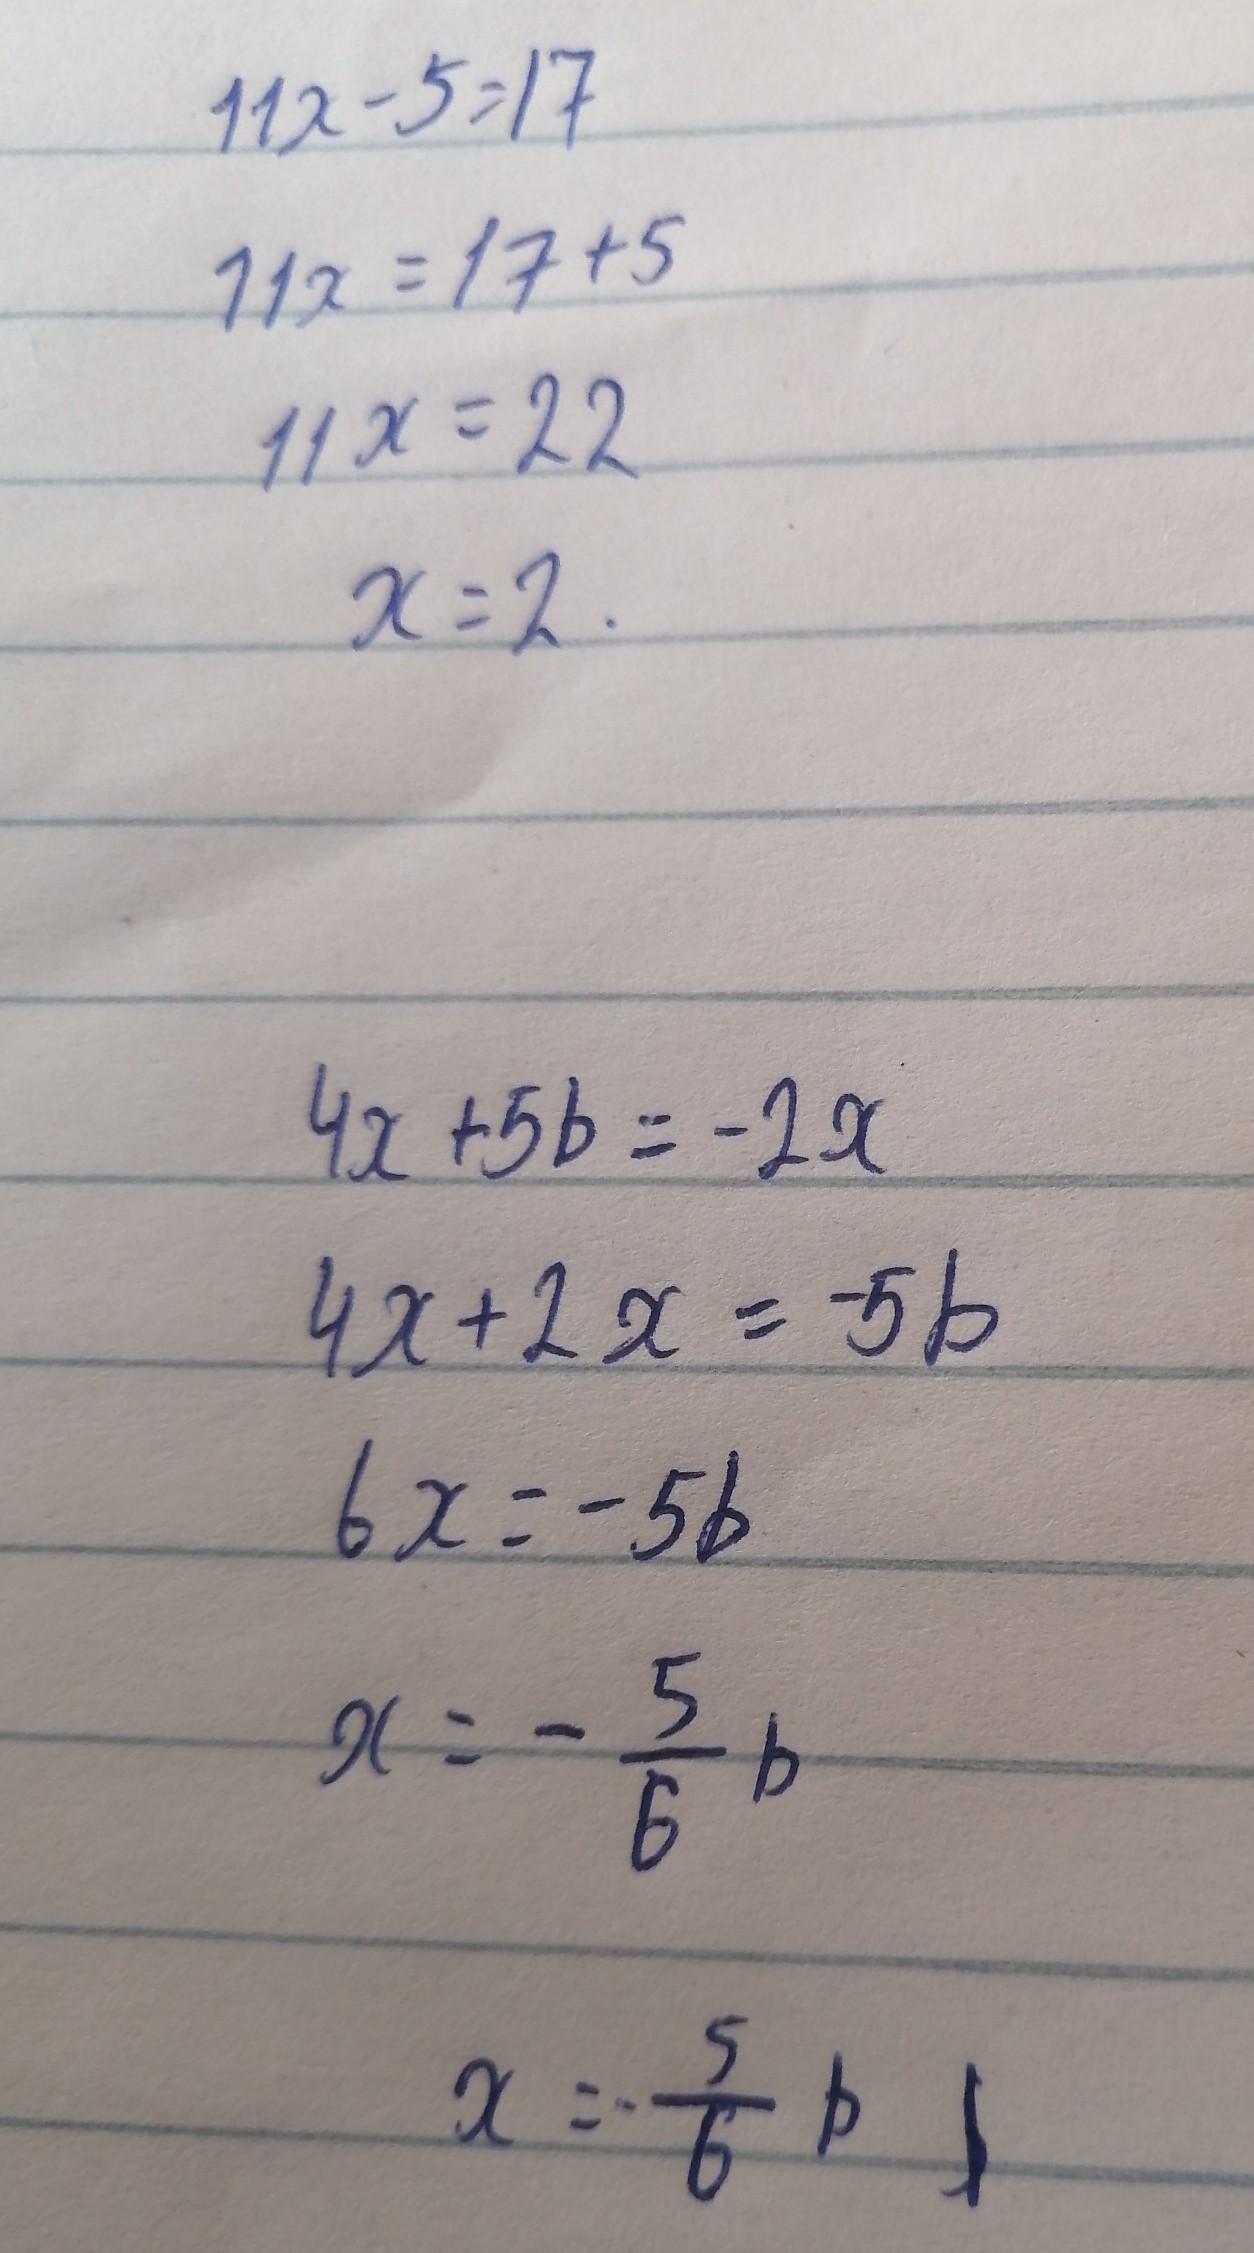 11x-5=17
11x=17+5
11x=22
x=2.
4x+5b=-2x
4x+2x=-5b
6x=-5b
x=-5/6 b
x=-5/6 b